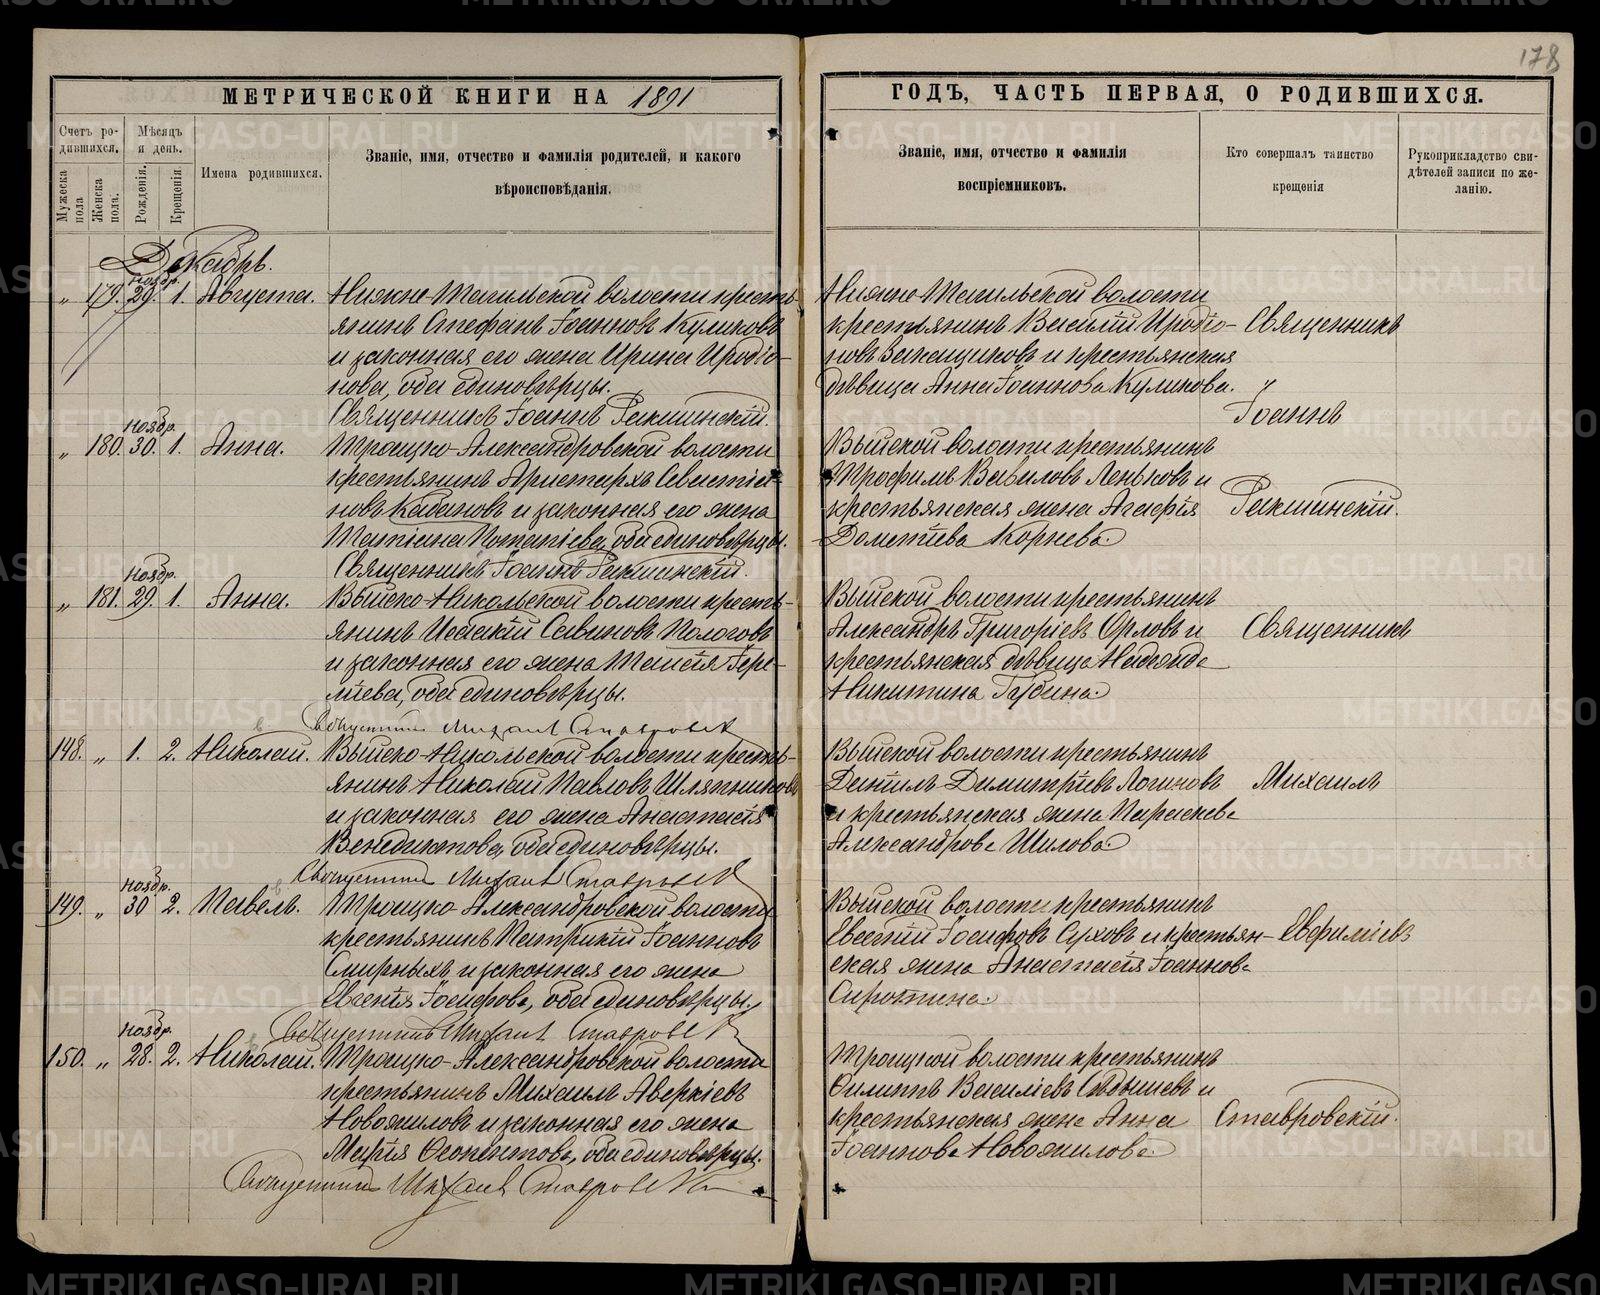 178
МЕТРИЧЕСКОЙ КНИГИ НА 1891
ГОДЪ, ЧАСТЬ ПЕРВАЯ, О РОДИВШИХСЯ.
Счетъ родившихся.
Мужеска пола
Женска пола.
Мѣсяцъ и день.
Рожденія.
Крещенія.
Имена родившихся.
Званіе, имя, отчество и фамилія родителей, и какого
вѣроисповѣданія.
Званіе, имя, отчество и фамилія
воспріемниковъ.
Кто совершалъ таинство
крещенія
Рукоприкладство сви-
дѣтелей записи по же-
ланію.
Декабрь.
Ноябр.
„ 179. 29. 1. Августа. Нижне-Тагильской волости кресть-
янинъ Стефанъ Іоанновъ Куликовъ
и законная его жена Ирина Иродіо-
нова, оба единовѣрцы.
Священникъ Іоаннъ Ракшинскій.
Нижне-Тагильской волости
крестьянинъ Василій Иродіо-
новъ Закащиковъ и крестьянская
дѣвица Анна Іоаннова Куликова.
Ноябр.
„ 180. 30. 1. Анна. Троицко-Александровской волости
крестьянинъ Аристархъ Севастіа-
новъ Кабановъ и законная его жена
Татіана Потапіева, оба единовѣрцы.
Священникъ Іоаннъ Ракшинскій.
Выйской волости крестьянинъ
Трофимъ Вавиловъ Леньковъ и
крестьянская жена Агафія
Дометіева Корнева.
Священникъ
Іоаннъ
Ракшинскій.
Ноябр.
„ 181. 29. 1. Анна. Выйско-Никольской волости кресть-
янинъ Исаакій Савиновъ Пологовъ
и законная его жена Таисія
оба единовѣрцы.
Священникъ Михаилъ Ставровскій
Выйской волости крестьянинъ
Александръ Григоріевъ Орловъ и
крестьянская дѣвица Надежда
Никитина Губина.
148. „ 1. 2. Николай. Выйско-Никольской волости кресть-
янинъ Николай Павловъ Шляпниковъ
и законная его жена Анастасія
Венедиктова, оба единовѣрцы.
Священникъ Михаилъ Ставровскій
Выйской волости крестьянинъ
Даніилъ Димитріевъ Логиновъ
и крестьянская жена Параскева
Александрова Шилова.
Ноябр.
149. „ 30 2. Павелъ. Троицко-Александровской волости
крестьянинъ Патрикій Іоанновъ
Смирныхъ и законная его жена
Евгенія Іосифова, оба единовѣрцы.
Священникъ Михаилъ Ставровскій
Выйской волости крестьянинъ
Евгеній Іосифовъ Суховъ и крестьян-
ская жена Анастасія Іоаннова
Сиротина.
Ноябр.
150. „ 28. 2. Николай. Троицко-Александровской волости
крестьянинъ Михаилъ Аверкіевъ
Новожиловъ и законная его жена
Марія Ѳеопентова, оба единовѣрцы.
Священникъ Михаилъ Ставровскій
Троицкой волости крестьянинъ
Филиппъ Василіевъ и
крестьянская жена Анна
Іоаннова Новожилова.
Священникъ
Михаилъ
Евфиміевъ
Ставровскій.
METRIKI.GASO-URAL.RU